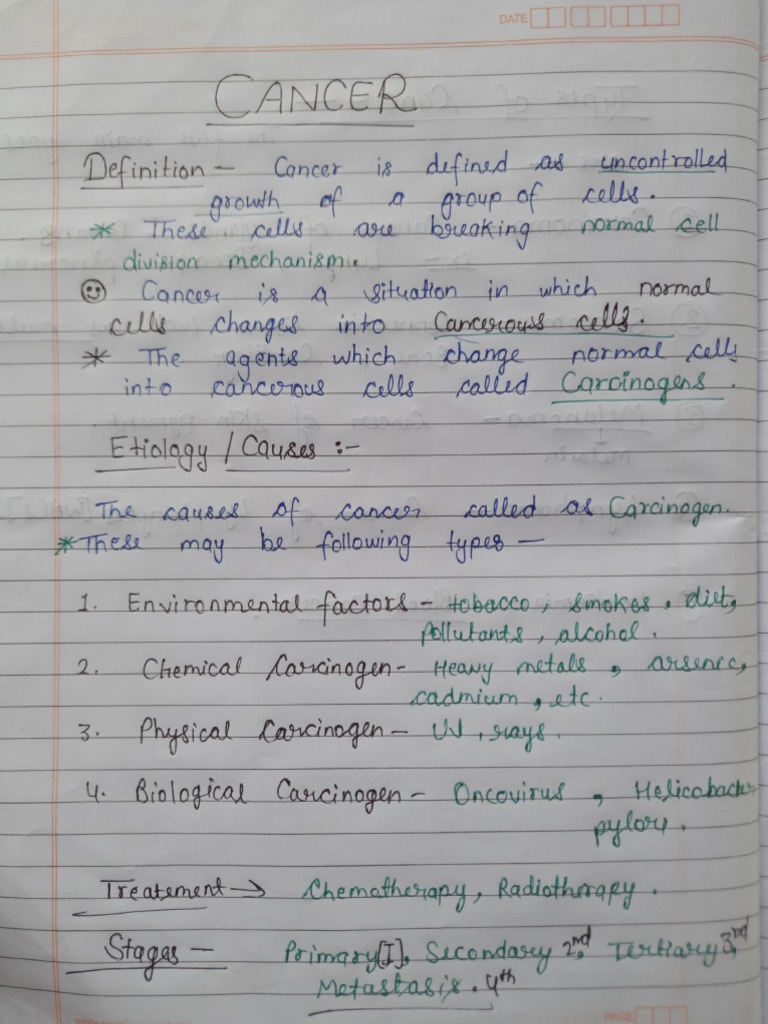 DATE
CANCER
Definition - Cancer is defined as uncontrolled
growth of a group of cells.
* These cells are breaking normal cell
division mechanism.
☺ Cancer is a situation in which normal
cells changes into Cancerous cells.
* The agents which change normal cells
into cancerous cells called Carcinogens.
Etiology / Causes :-
The causes of cancer called as Carcinogen.
* These may be following types -
1. Environmental factors - tobacco, smokes, diet,
pollutants, alcohol.
2. Chemical Carcinogen - Heavy metals, arsenic,
cadmium, etc.
3. Physical Carcinogen - UV, rays.
4. Biological Carcinogen - Oncovirus, Helicobacter
pylory.
Treatement → Chematherapy, Radiotherapy.
Stages - Primary[I], Secondary 2nd, Tertiary 3nd,
Metastasis. 4th
PAGE